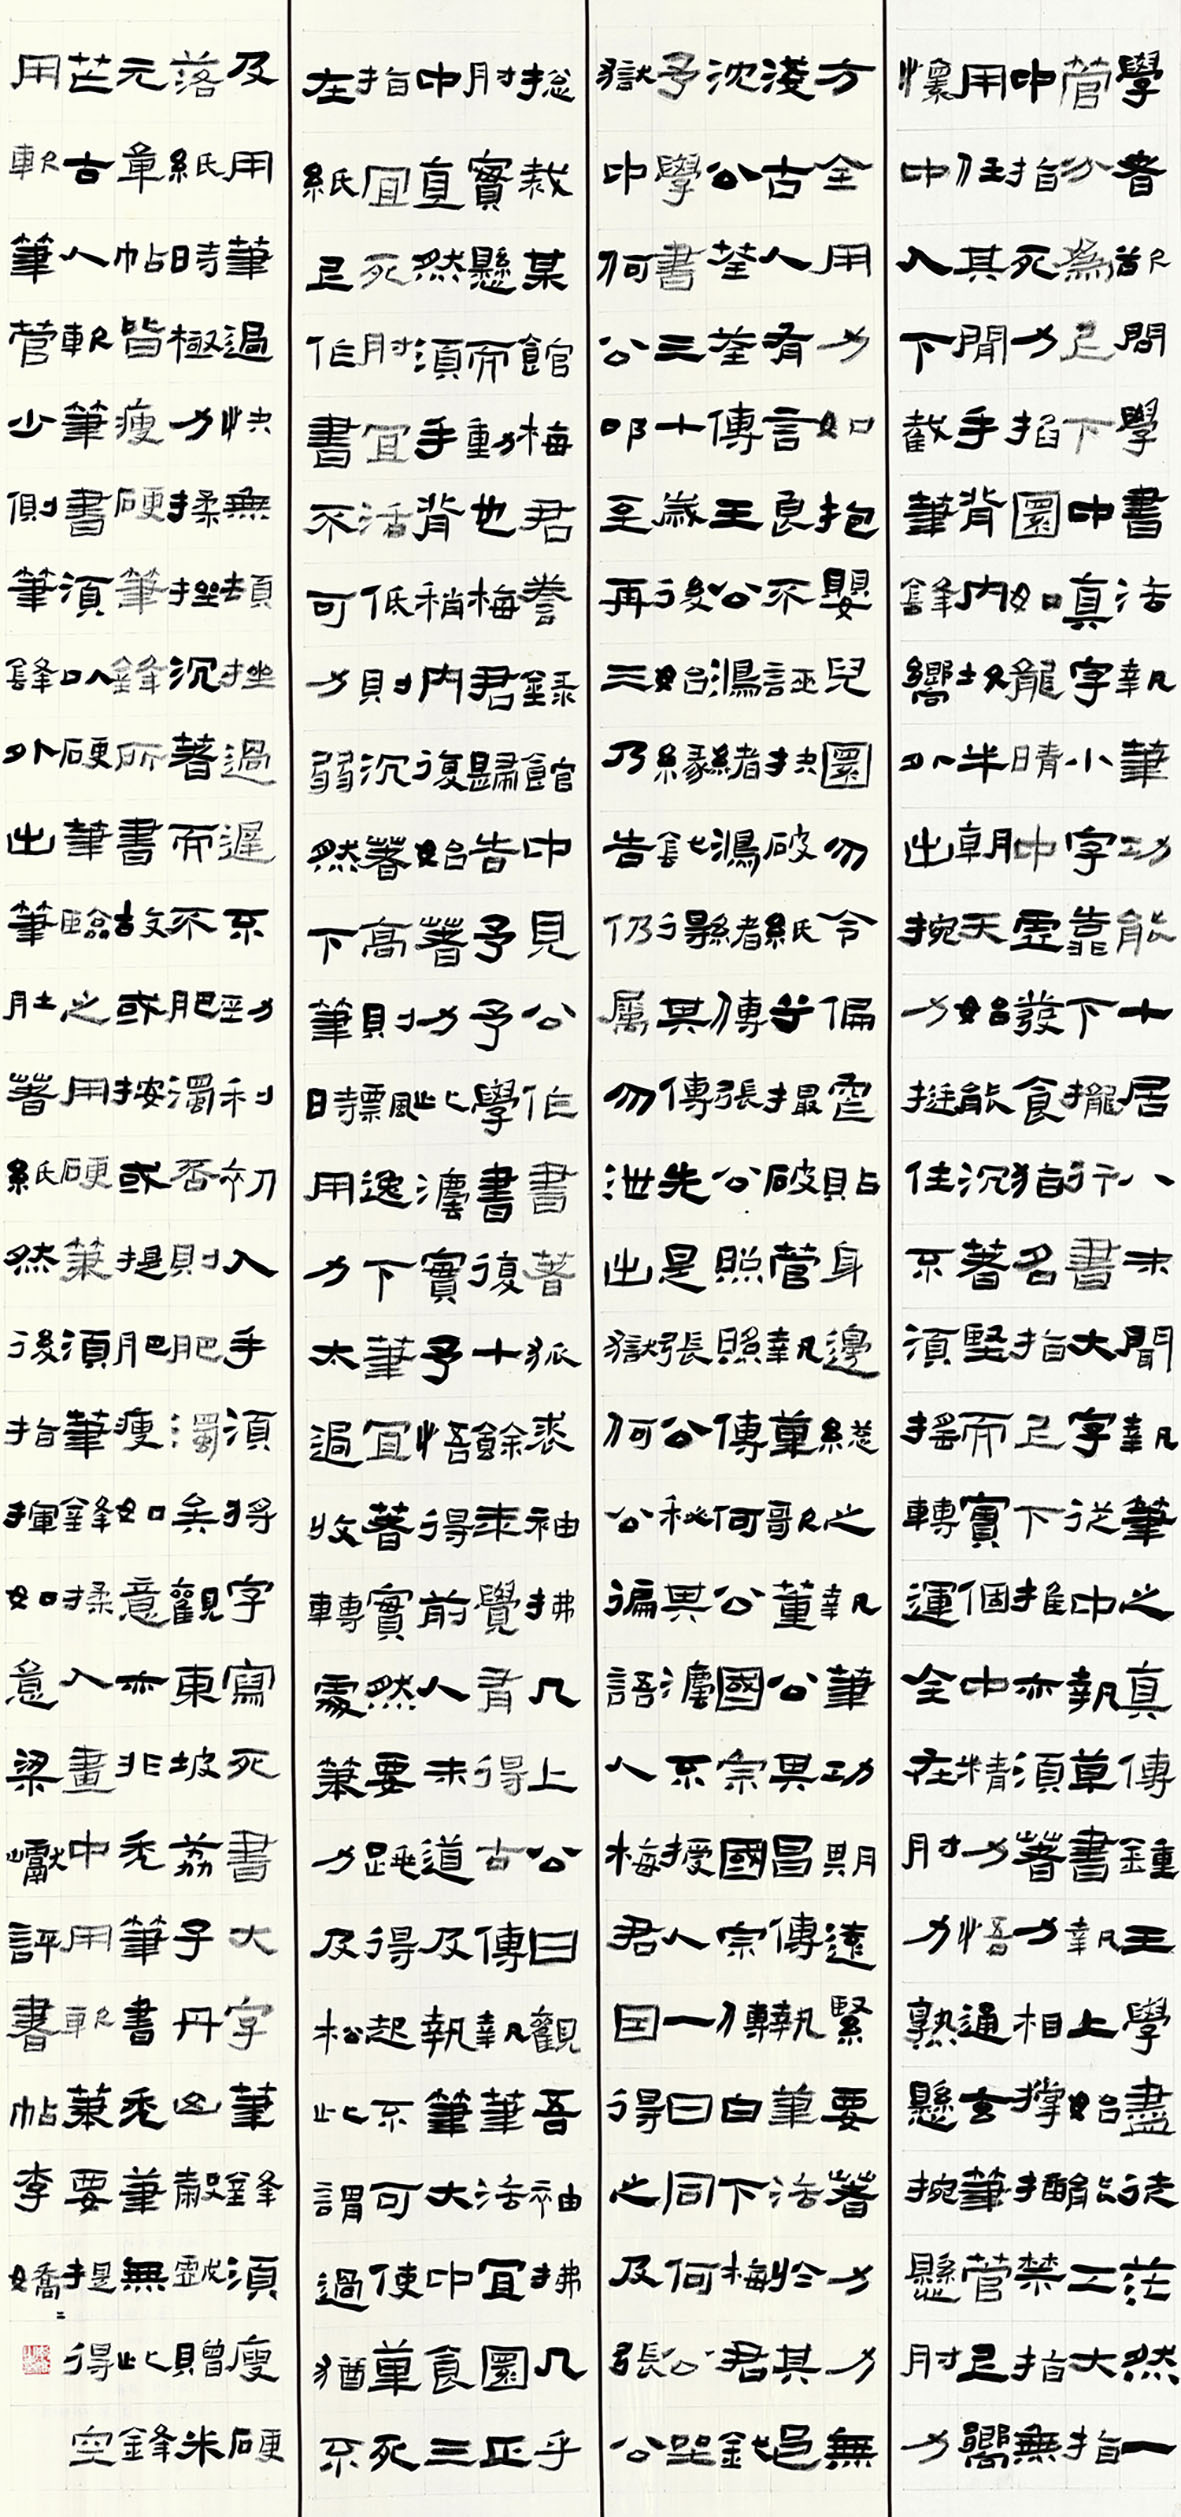 學者欲問學書法執筆功能十居八未聞執筆之真傳鍾王學盡徒茫然一
管分為上下中真字小字靠下攏行書大字從中執草書執上始能工大指
中指死力掐圓如龍睛中虛發食指名指上下推亦須著力相撐禁指無
用任其閒手背內坳半朝天始能沉著堅而實個中精力悟通玄筆管上嚮
懷中入下截筆鋒嚮外出捥力挺住不須搖轉運全在肘力熟懸捥懸肘力
方全用力如抱嬰兒圓勿令偏霍貼身邊總之執筆功期遠緊要著力力無
淺古人有言良不誣抉破紙兮撮破管執筆歌董公其昌傳執筆法於其邑
沈公荃荃傳王公鴻緒鴻緒傳張公照照傳何公國宗國宗傳白下梅君釴
予學書三十歲後始緣釴得其傳先是張公秘其法不授人一日同何公坐
獄中何公叩至再三乃告仍屬勿泄出獄何公徧語人梅君因得之及張公
總裁某館梅君謄錄館中見公作書著狐裘袖拂几上公曰觀吾袖拂几乎
肘實懸而動也梅君歸告予予學書復十餘年覺有得古傳執筆法宜圓正
中直然須手背稍內復始著力此法實予悟得前人未道及執筆大中食三
指宜死肘宜活低則沉著高則飄逸下筆宜著實然要跳得起不可使筆死
在紙上作書不可力弱然下筆時用力太過收轉處筆力及松此謂過猶不
及用筆過快無頓挫過遲不勁利初入手須將字寫死書大字筆鋒須瘦硬
落紙時極力揉挫沉著而不肥濁否則肥濁矣觀東坡荔子丹凶贈米
元章帖皆瘦硬筆鋒所書故或按或提肥瘦如意亦非禿筆書禿筆無此鋒
芒古人軟筆書須以硬筆臨之用硬筆須筆鋒揉入畫中用軟筆要提得空
用軟筆管少側筆鋒外出筆肚著紙然後指揮如意梁巘評書帖李嬌